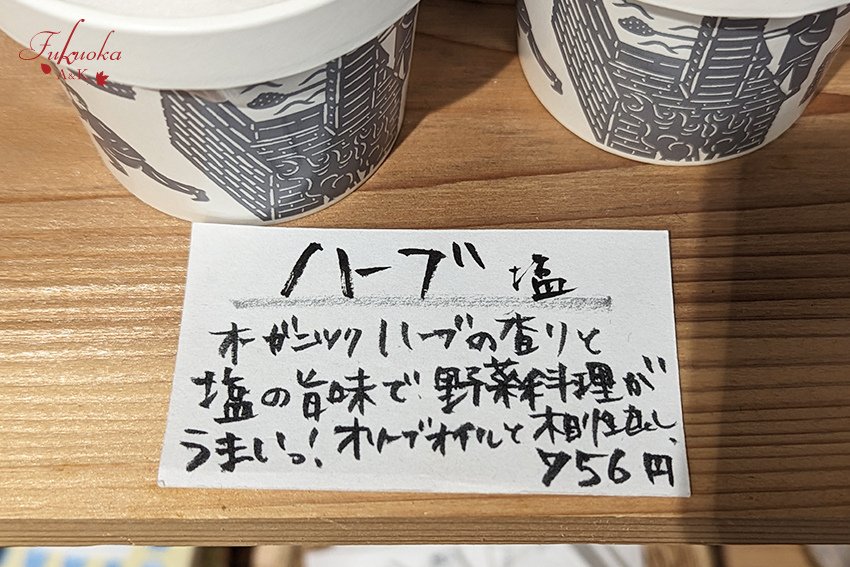 Fukuoka
A&K
ハーブ 塩
オーガニック ハーブの香りと
塩の旨味で 野菜料理が
うまいっ! オリーブオイルと 相性良し、
756円